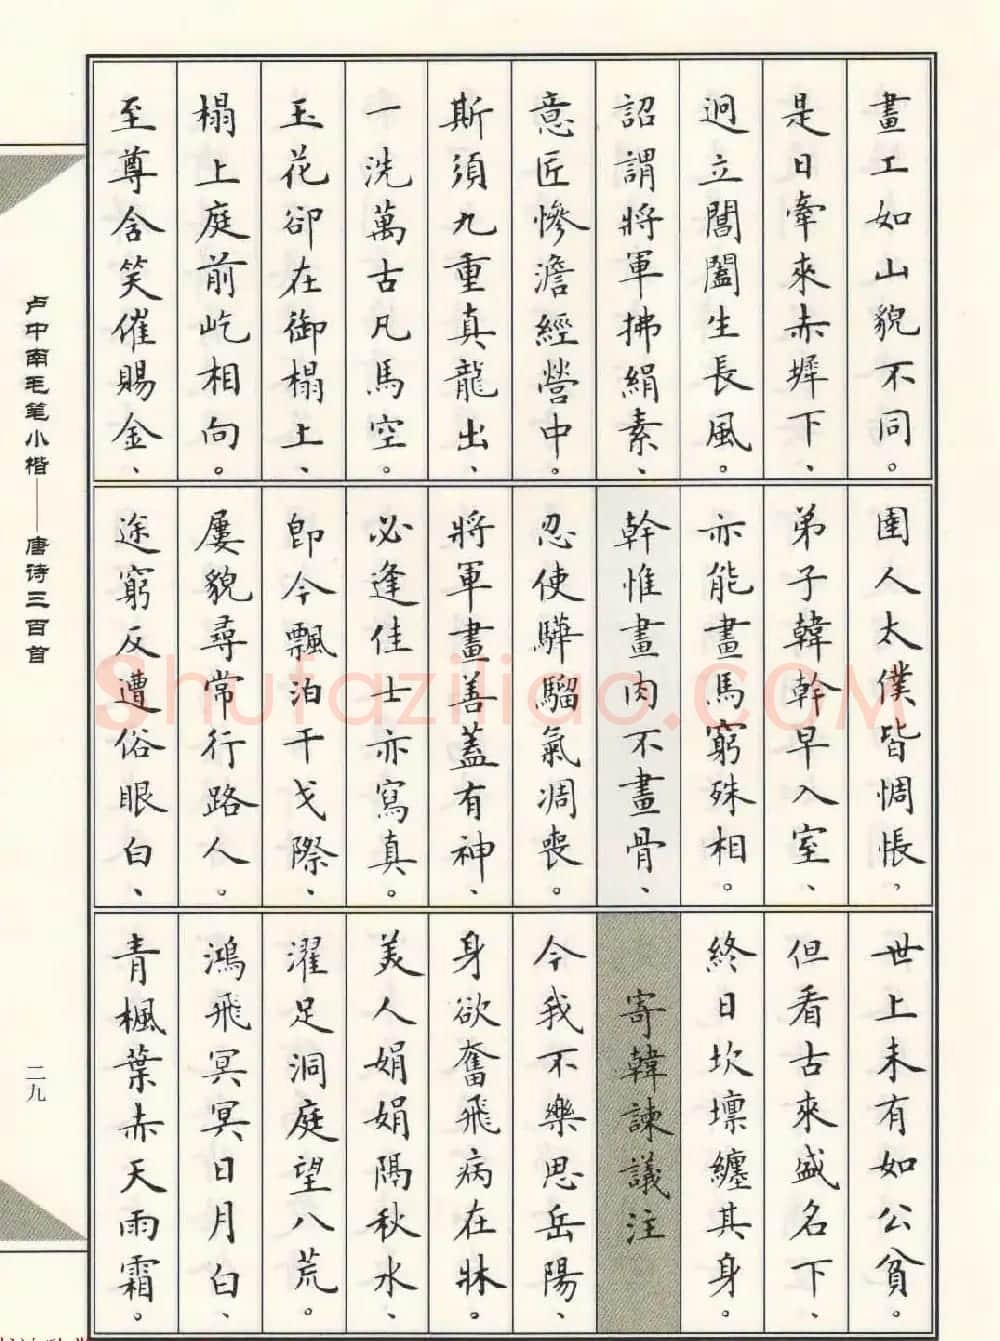 畫工如山貌不同。
是日牽來赤墀下、
迥立閶闔生長風。
詔謂將軍拂絹素、
意匠慘澹經營中。
斯須九重真龍出、
一洗萬古凡馬空。
玉花卻在御榻上、
榻上庭前屹相向。
至尊含笑催賜金、
圉人太僕皆惆悵、
弟子韓幹早入室、
亦能畫馬窮殊相。
幹惟畫肉不畫骨、
忍使驊騮氣凋喪。
將軍畫善蓋有神、
必逢佳士亦寫真。
即今飄泊干戈際、
屢貌尋常行路人。
途窮反遭俗眼白、
世上未有如公貧。
但看古來盛名下、
終日坎壈纏其身。
寄韓諫議注
今我不樂思岳陽、
身欲奮飛病在牀。
美人娟娟隔秋水、
濯足洞庭望八荒。
鴻飛冥冥日月白、
青楓葉赤天雨霜。
卢中南毛笔小楷——唐诗三百首
二九
Shufaziliao.com